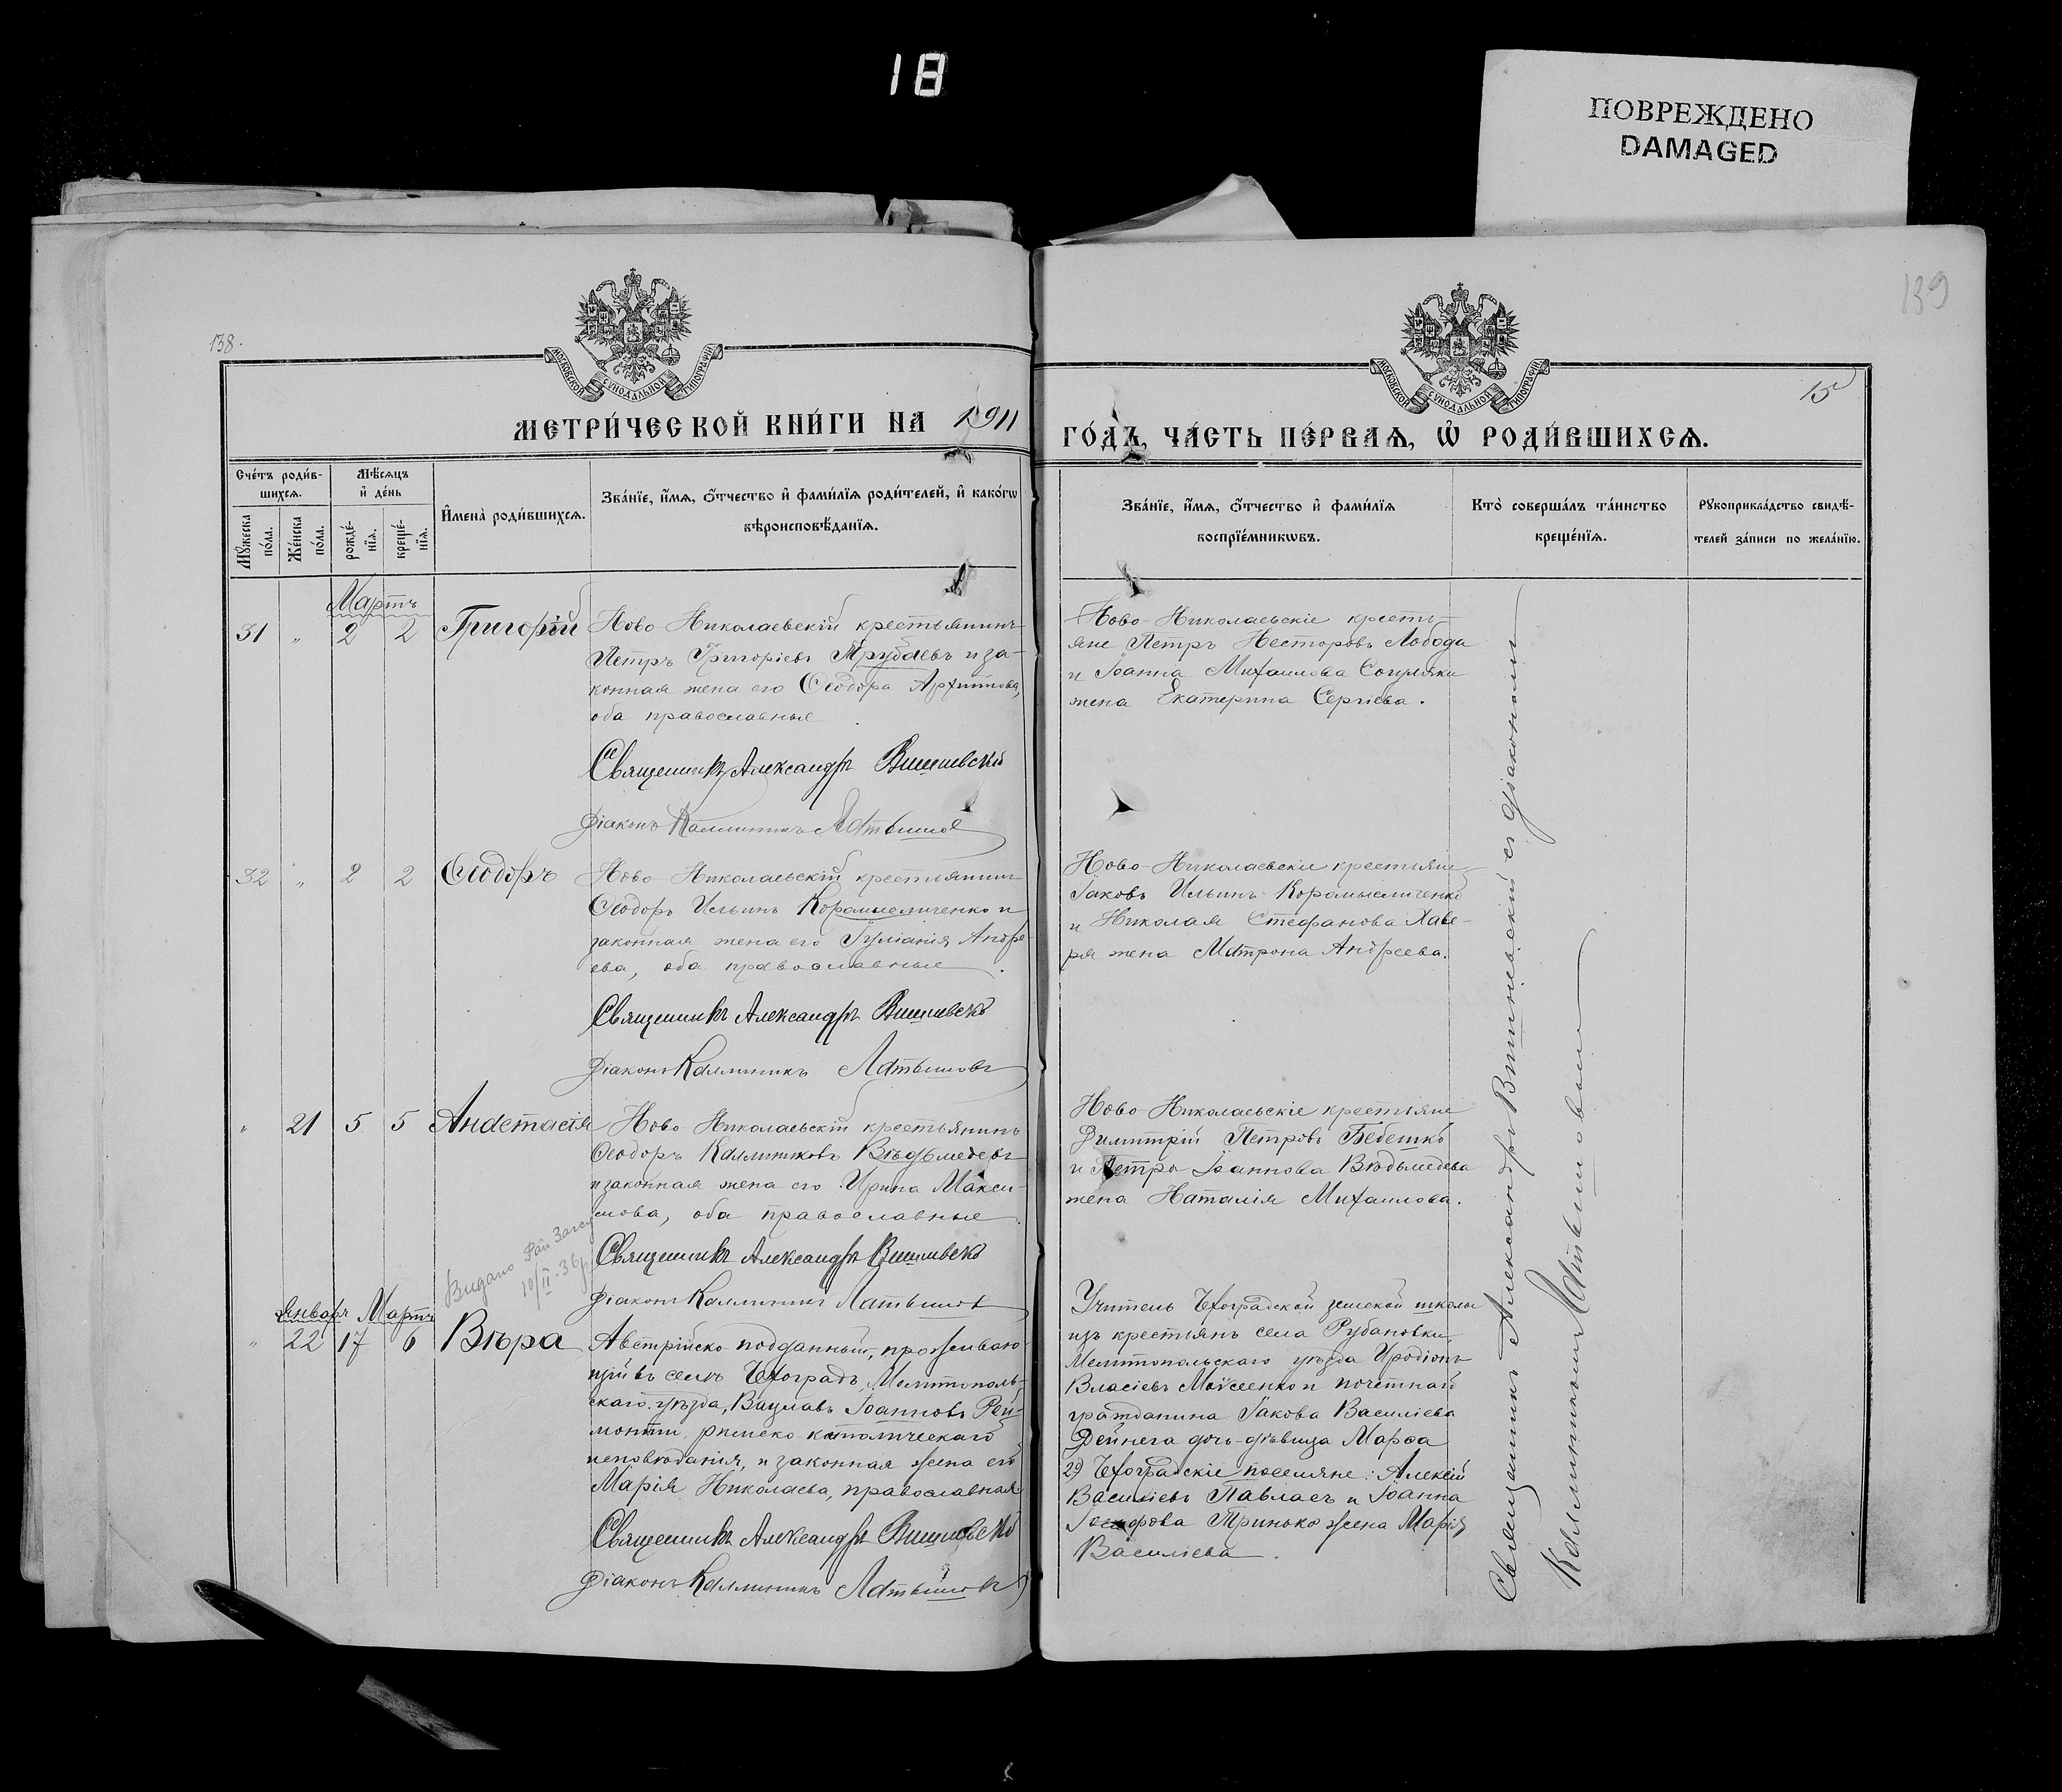 18
ПОВРЕЖДЕНО
DAMAGED
138.
139
15
МОСКОВСКОЙ СѴНОДАЛЬНОЙ ТИПОГРАФІИ
МОСКОВСКОЙ СѴНОДАЛЬНОЙ ТИПОГРАФІИ
МЕТРИ́ЧЕСКОЙ КНИ́ГИ НА 1911
ГО́ДЪ, ЧА́СТЬ ПЕ́РВАѦ, Ѽ РОДИ́ВШИХСѦ.
Сче́тъ роди́в-
шихсѧ.
Мѣ́сѧцъ
и҆ де́нь
Мꙋ́жеска
по́ла.
Же́нска
по́ла.
рожде́-
нїѧ.
креще́-
нїѧ.
И҆мена̀ роди́вшихсѧ.
Зва́нїе, и҆́мѧ, ѻ҆́тчество и҆ фами́лїѧ роди́телей, и҆ како́гѡ
вѣроисповѣ́данїѧ.
Зва́нїе, и҆́мѧ, ѻ҆́тчество и҆ фами́лїѧ
воспрїе́мникѡвъ.
Кто̀ соверша́лъ та́инство
креще́нїѧ.
Рꙋкоприкла́дство свидѣ́-
телей за́писи по жела́нїю.
Мартъ
31 " 2 2 Григорій
Ново-Николаевскій крестьянинъ
Петръ Григоріевъ Трубаевъ и за-
конная жена его Ѳеодора Архиппова,
оба православные.
Священникъ Александръ Вишневскій
Діаконъ Каллиникъ Латышовъ
Ново-Николаевскіе кресть-
яне Петръ Несторовъ Лобода
и Іоанна Михаилова
жена Екатерина Сергіева.
32 " 2 2 Ѳеодоръ
Ново-Николаевскій крестьянинъ
Ѳеодоръ Ильинъ Коромысличенко и
законная жена его Іуліанія Андре-
ева, оба православные.
Священникъ Александръ Вишневскій
Діаконъ Каллиникъ Латышовъ
Ново-Николаевскіе крестьяне
Іаковъ Ильинъ Коромысличенко
и Николая Стефанова Хаве-
ря жена Матрона Андреева.
" 21 5 5 Анастасія
Ново-Николаевскій крестьянинъ
Ѳеодоръ Каллиниковъ Вѣдьмедевъ
и законная жена его Ирина Макси-
мова, оба православные.
Священникъ Александръ Вишневскій
Діаконъ Каллиникъ Латышовъ
Ново-Николаевскіе крестьяне
Димитрій Петровъ Бебешко
и Петра Іоаннова Вѣдьмедева
жена Наталія Михаилова.
Видано Рай Загс
10/II-36 р
Январь Мартъ
" 22 17 6 Вѣра
Австрійско-подданный, проживаю-
щій въ селѣ Чехоградъ, Мелитополь-
скаго уѣзда, Вацлавъ Іоанновъ Рей-
монтъ, римско-католическаго
исповѣданія, и законная жена его
Марія Николаева, православная
Священникъ Александръ Вишневскій
Діаконъ Каллиникъ Латышовъ
Учитель Чехоградской земской школы
изъ крестьянъ села Рубановки,
Мелитопольскаго уѣзда Иродіонъ
Власіевъ Моисеенко и почетнаго
гражданина Іакова Василіева
Дейнега дочь-дѣвица Марѳа
2) Чехоградскіе поселяне: Алексій
Василіевъ Павласъ и Іоанна
Тринько жена Марія
Василіева.
Священникъ Александръ Вишневскій съ діакономъ
Каллиникомъ Латышовымъ